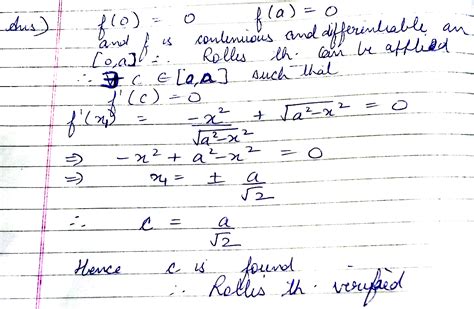 Ans) f(0) = 0 f(a) = 0
and f is continuous and differentiable on
[0,a] ∴ Rolles th. can be applied
∴ ∃ C ∈ [0,a] such that
f'(c) = 0
f'(x) = -x²/√a²-x² + √a²-x² = 0
⇒ -x² + a² - x² = 0
⇒ x = ± a/√2
∴ c = a/√2
Hence c is found
∴ Rolles th. verified